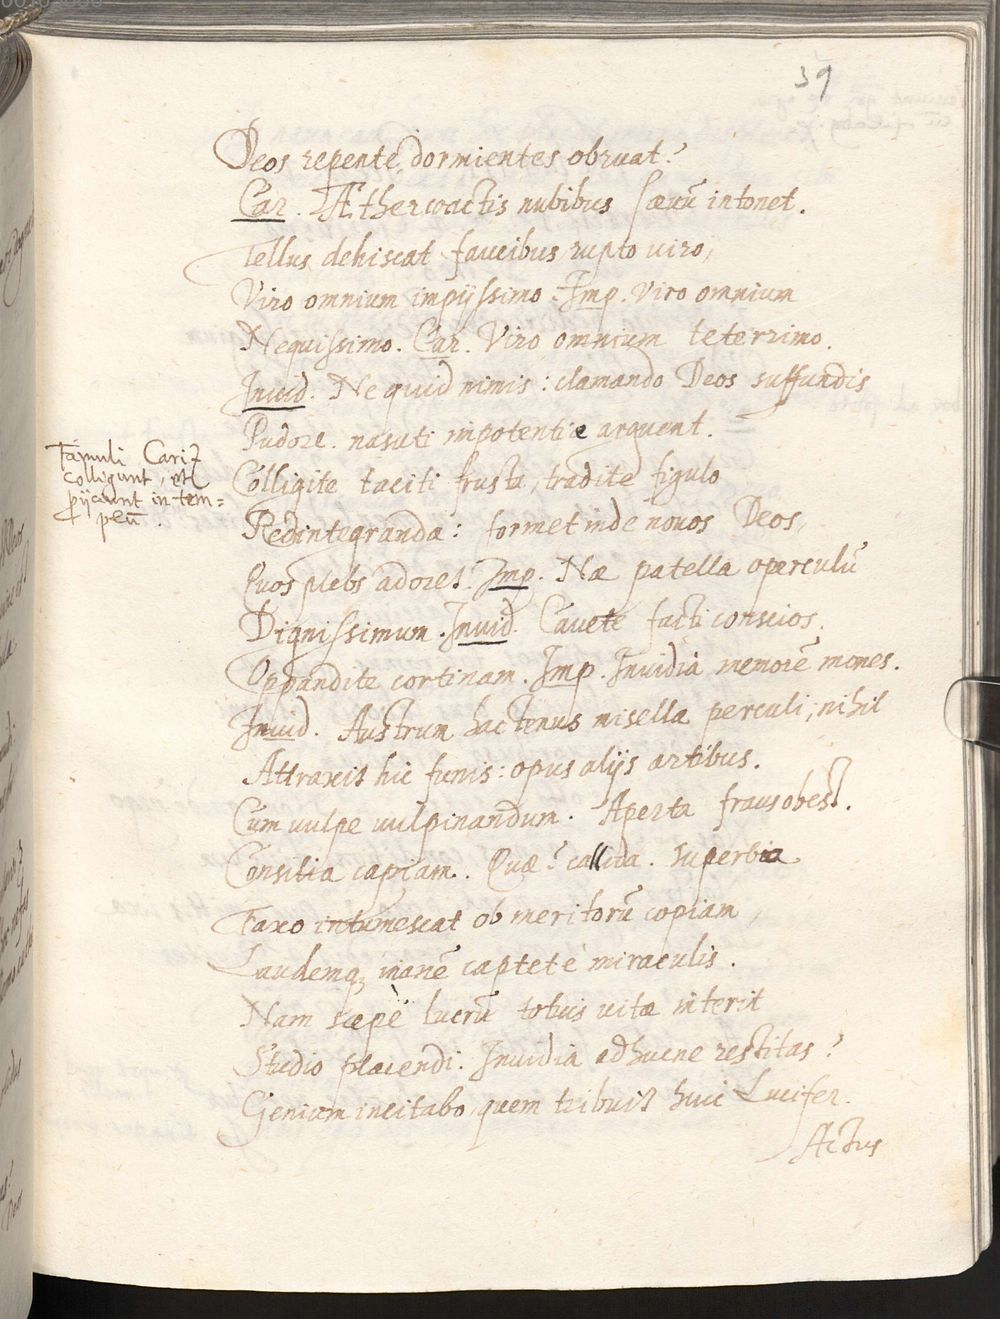 39
Deos repente dormientes obruat?
Car. Æther coactis nubibus sæuū intonet.
Tellus dehiscat faucibus rupto viro,
Viro omnium impijssimo. Imp. Viro omnium
Nequissimo. Car. Viro omnium teterrimo.
Inuid. Ne quid nimis: clamando Deos suffundis
Pudore. nasuti impotentiæ arguent.
Colligite taciti frusta, tradite figulo
Redintegranda: formet inde nouos Deos,
Quos plebs adoret. Imp. Næ patella operculū
Dignissimum. Inuid. Cauete facti conscios.
Oppandite cortinam. Imp. Inuidia memorē mones.
Inuid. Austrum hactenus misella perculi; nihil
Attraxit hic funis: opus alijs artibus.
Cum vulpe vulpinandum. Aperta fraus obest.
Consilia capiam. Quæ? callida. Superbia
Faxo intumescat ob meritorū copiam,
Laudemq₃ inanē captet è miraculis.
Nam sæpè lucrū totius vitæ interit
Studio placendi. Inuidia adhucne restitas?
Geniam incitabo, quem tribuit huic Lucifer.
Actus
Famuli Cari
colligunt, et
pijciunt in tem=
plū.